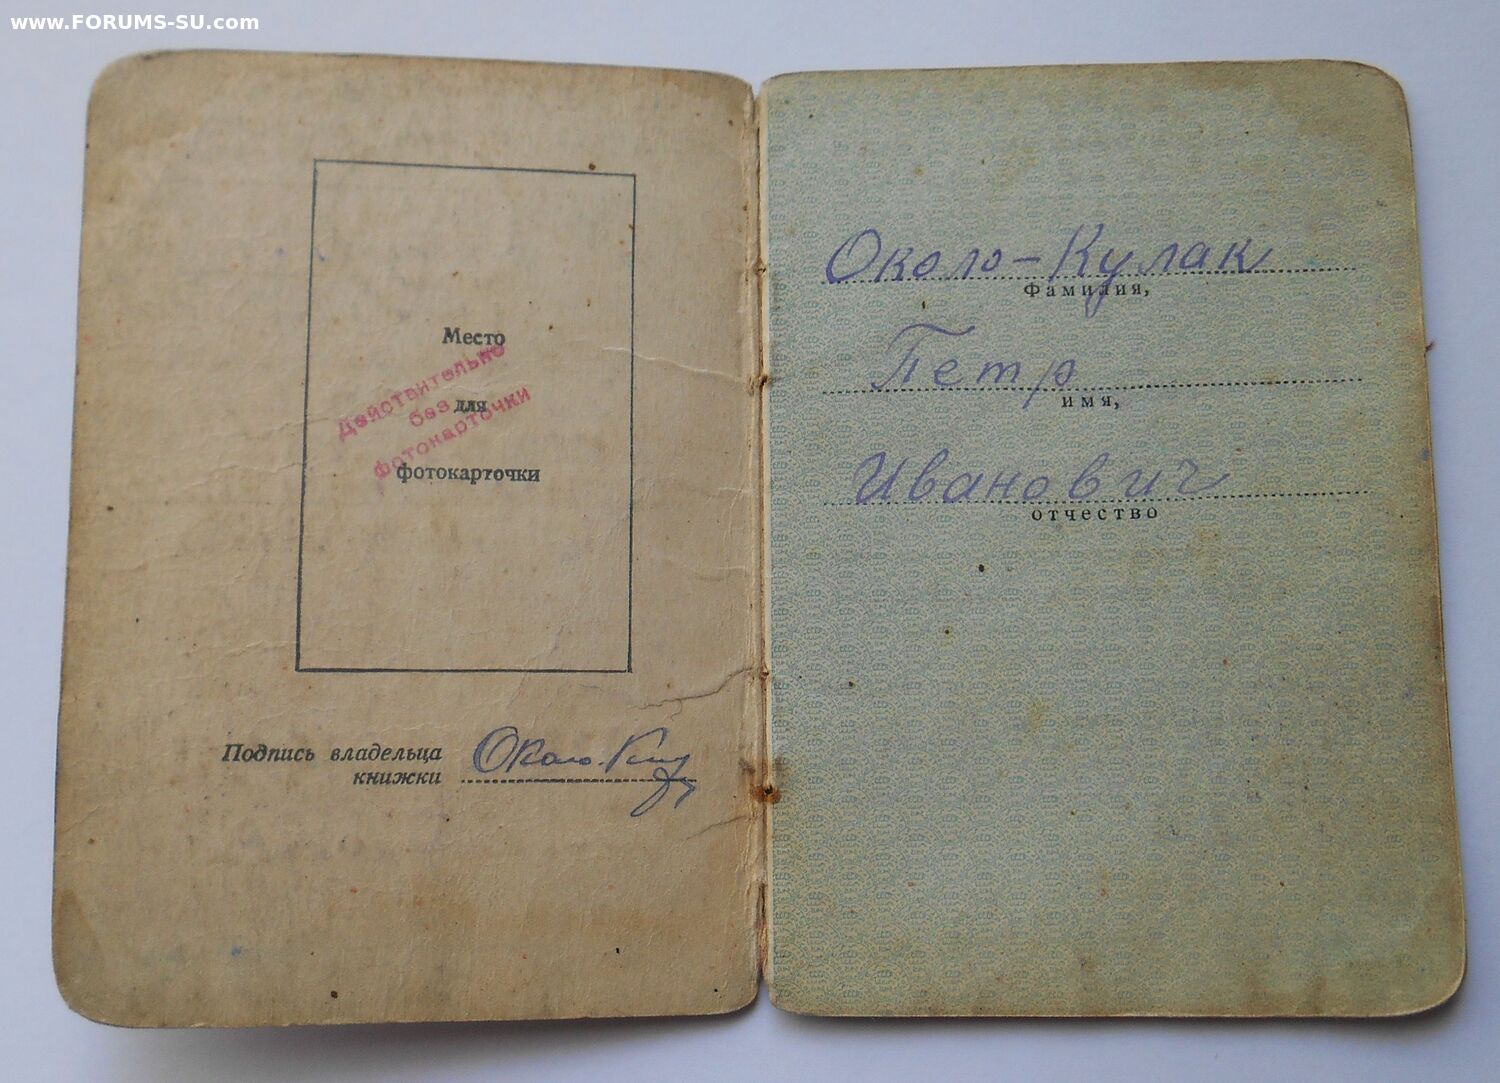 www.FORUMS-SU.com
Место
Действительно
без
для
фотокарточки
фотокарточки
Подпись владельца
книжки
Около-Кулак
Фамилия,
Петр
имя,
Иванович
отчество